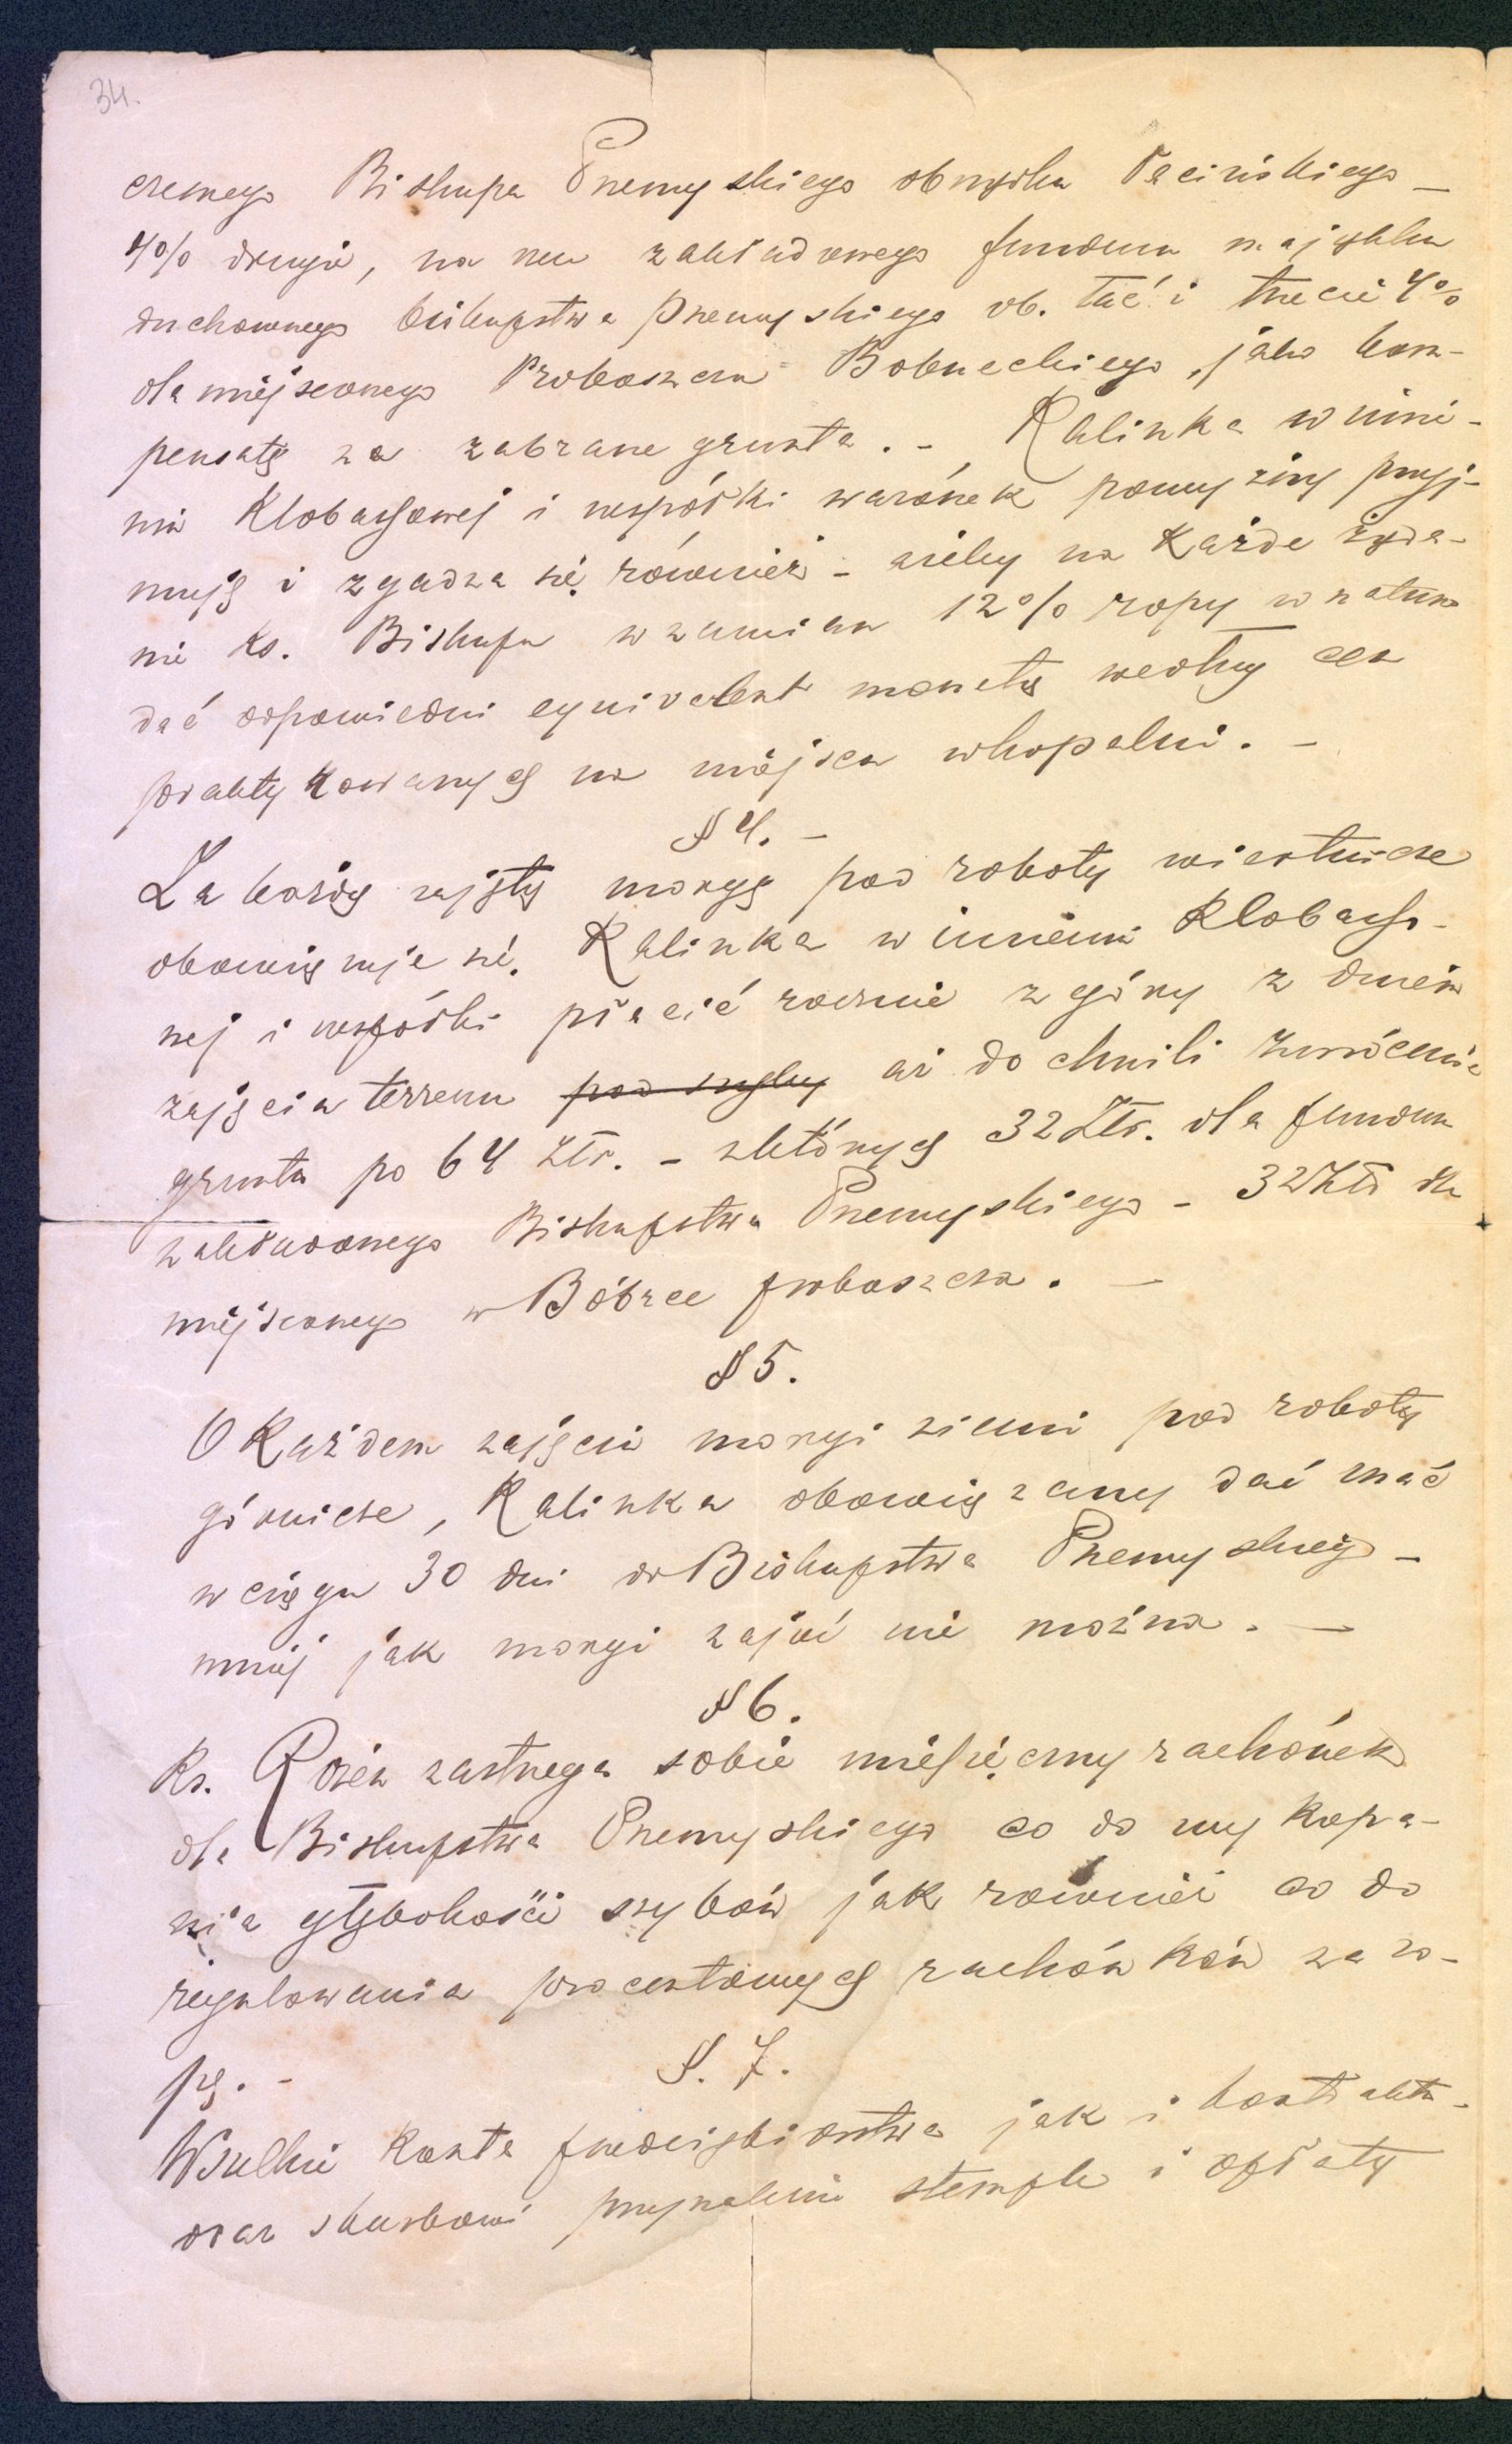 34.
czesnego Biskupa Przemyskiego obrządku łacińskiego —
4% drugie, na rzecz zakładowego funduszu majątku
duchownego biskupstwa Przemyskiego ob. łać: i trzecie 4%
dla miejscowego Proboszcza Bobreckiego, jako kom-
pensatę za zabrane grunta. – Kalinka w imie-
niu Klobassowej i wespółki warónek powyższy przyj-
muje i zgadza się również – ażeby na każde żąda-
nie Ks. Biskupa w zamian 12% ropy w naturze
dać odpowiedni eqnivalent monetą według cen
praktykowanych na miejscu w kopalni. –
§ 4. –
Za każdy zajęty morgę pod roboty wiertnicze
obowiązuje się Kalinka w imieniu Klobasso-
wej i wespółki płacić rocznie z góry z dniem
zajęcia terrenu pod szyby aż do chwili zwrócenia
gruntu po 64 Złr. – z których 32 Złr. dla funduszu
zakładowego Biskupstwa Przemyskiego – 32 Złr dla
miejscowego w Bóbrce proboszcza. —
§ 5.
O Każdem zajęciu morgi ziemi pod roboty
górnicze, Kalinka obowiązany dać znać
w ciągu 30 dni do Biskupstwa Przemyskiego –
mniej jak morgi zająć nie można. —
§ 6.
Ks. zastrzega sobie miesięczny rachónek
dla Biskupstwa Przemyskiego co do wykopa-
nia głębokości szybów jak rownież co do
regulowania procentowych rachónków za ro-
pę. –
§. 7.
Wszelkie koszta przedsiębiorstwa jak i kontraktu
oraz skarbowi przynależne stemple i opłaty